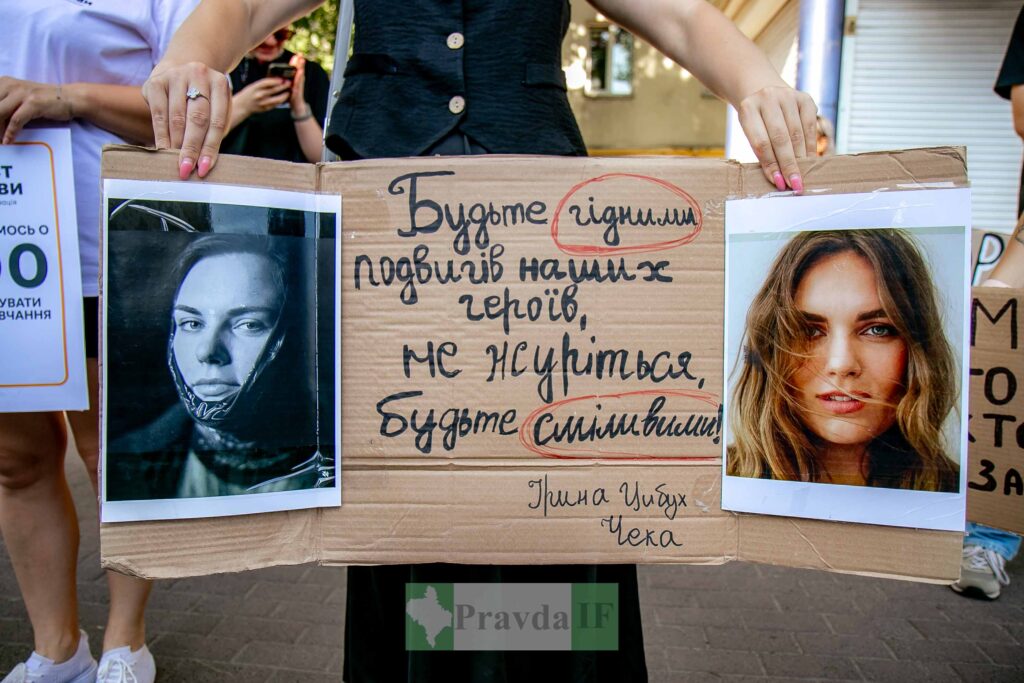 Будьте гідними
подвигів наших
героїв,
не журіться,
будьте сміливими!
Ірина Цибух
Чека
ВИ
МОСЬ О
00
УВАТИ
ВЧАННЯ
М
ТО
КТО
ЗА
Pravda IF